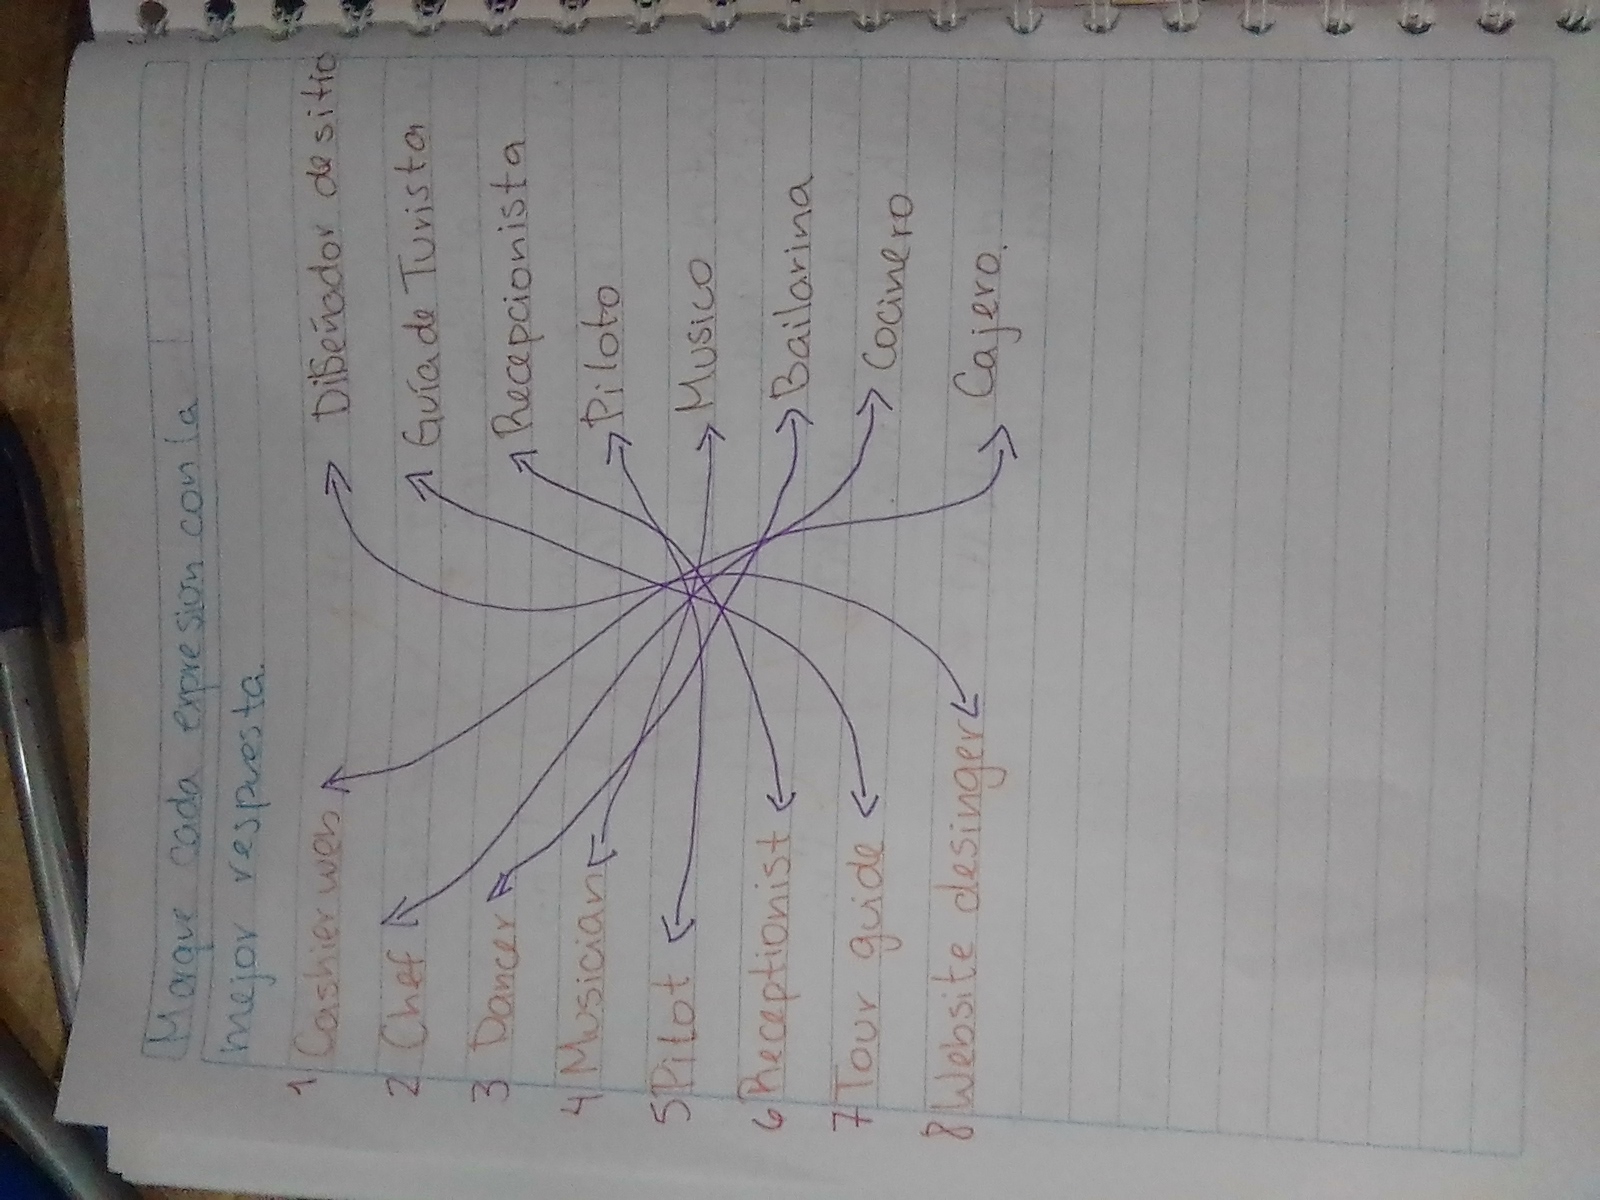 Marque cada expresion con la
mejor respuesta.
1 Cashier web Diseñador de sitio
2 Chef Guía de Turista
3 Dancer Recepcionista
4 Musician Piloto
5 Pilot Musico
6 Receptionist Bailarina
7 Tour guide Cocinero
8 Website desinger Cajero.